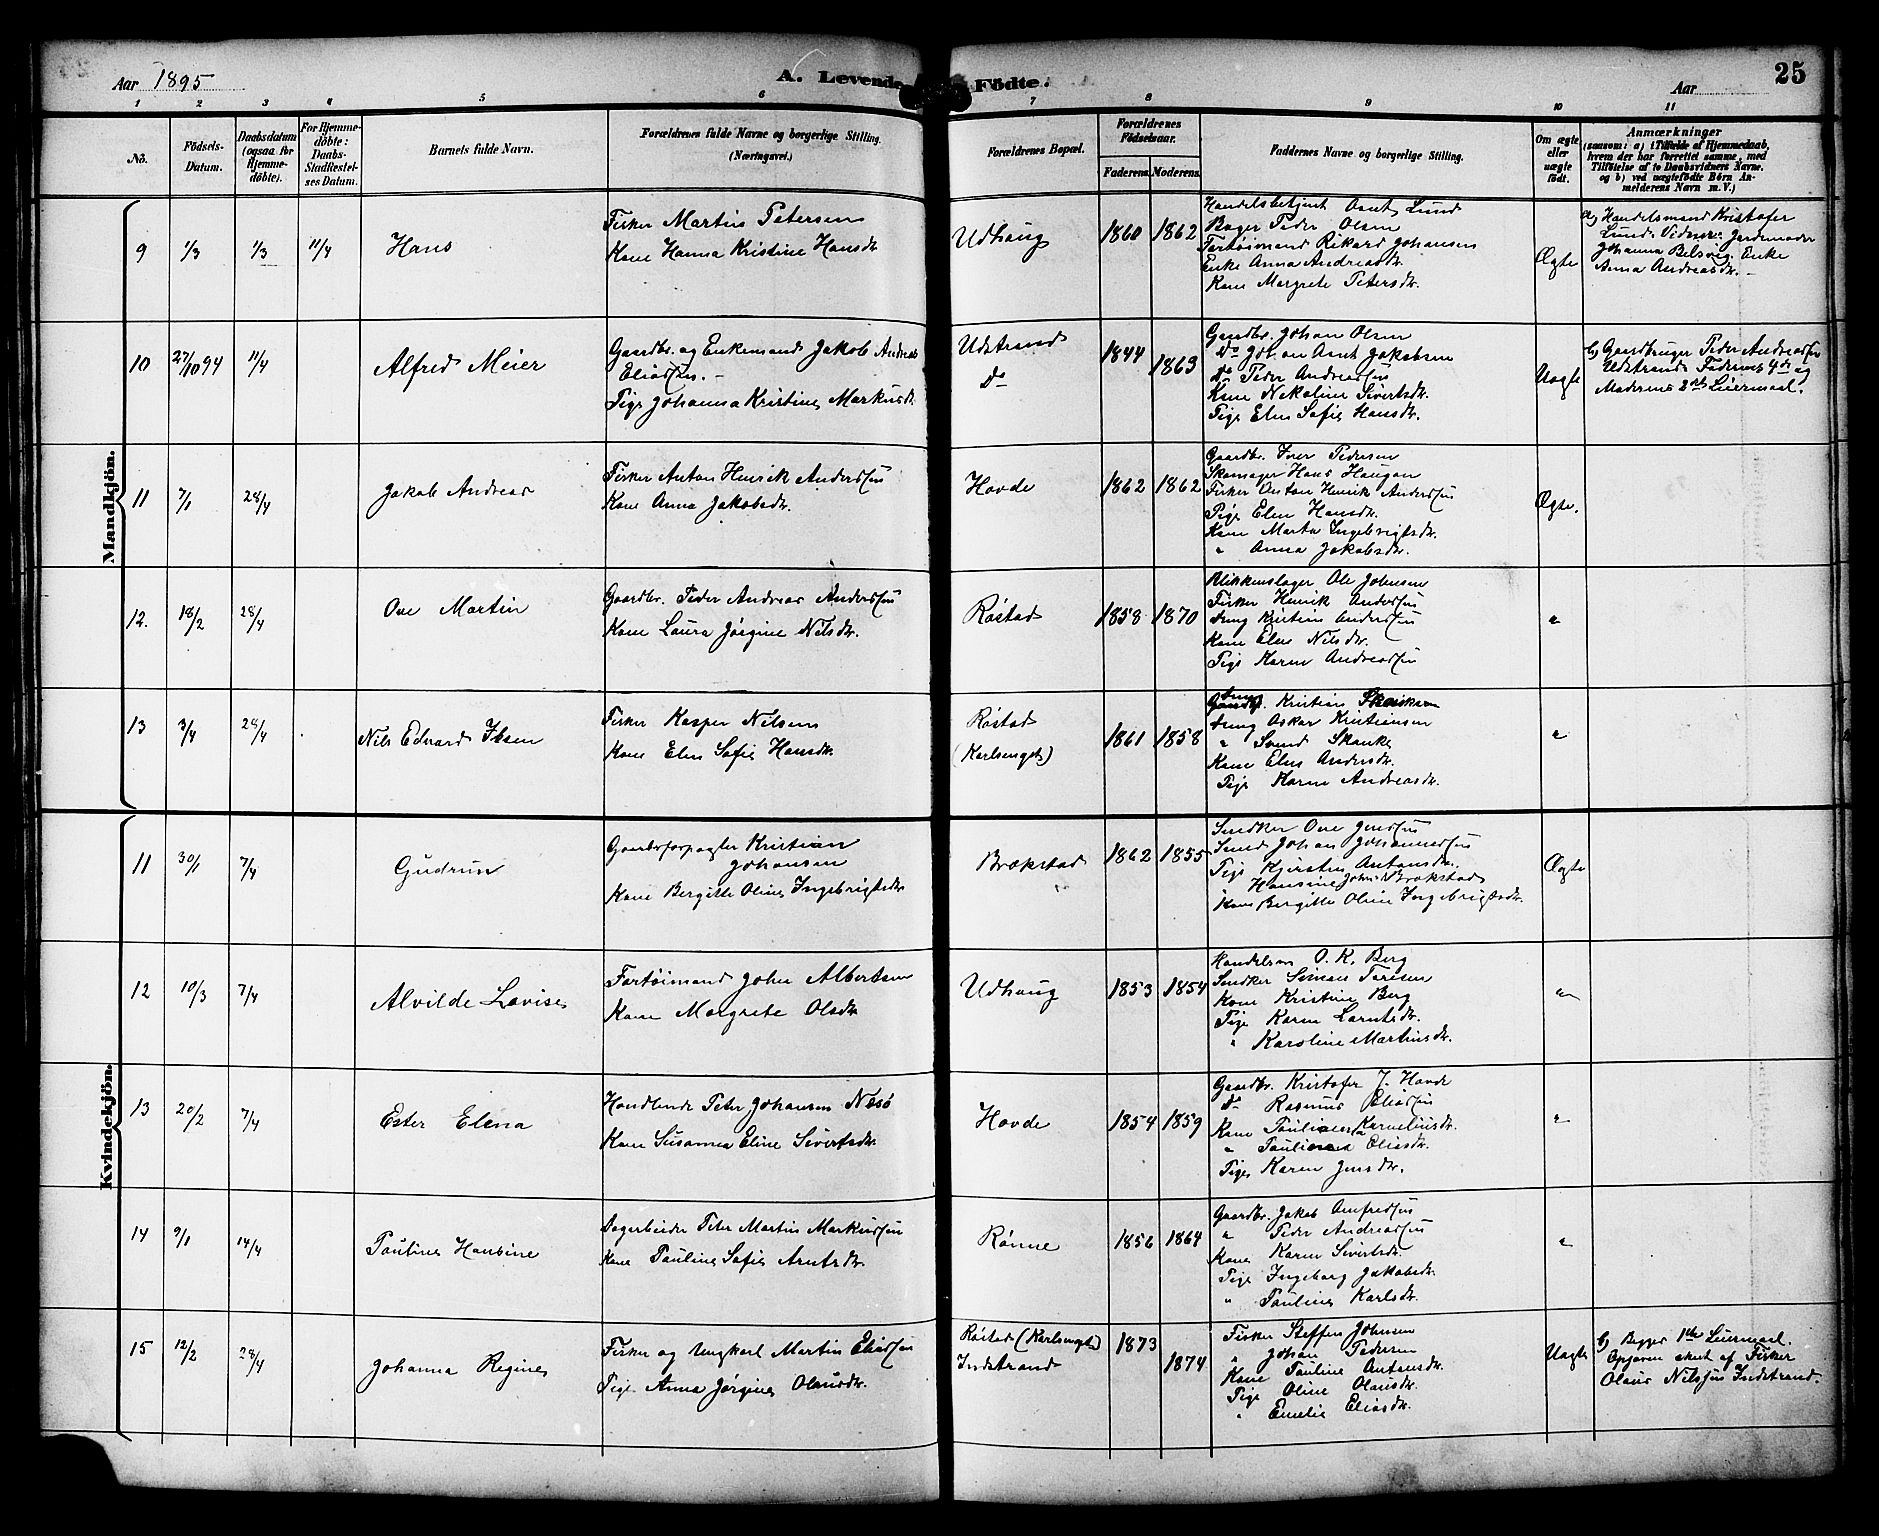 Aar 1895
A. Levende Födte.
Aar
25
1 2 3 4 5 6 7 8 9 10 11
No.
Födsels-Datum.
Daabsdatum (ogsaa for Hjemme-döbte).
For Hjemme-döbte: Daabs-StadRestel-ses Datum.
Barnets fulde Navn.
Forældrenes fulde Navne og borgerlige Stilling.
(Næringsvei.)
Forældrenes Bopæl.
Forældrenes Födselsaar.
Faderens. Moderens.
Faddernes Navne og borgerlige Stilling.
Om ægte eller uægte födt.
Anmærkninger
(saasom: a) i Tilfælde af Hjemmedaab,
hvem der har forrettet samme, med
Tilföielse af to Daabsvidners Navne.
og b) ved uægtefödte Börn An-
melderens Navn m. V.)
Mandkjön.
9 1/3 1/3 11/4 Hans
Fisker Martin Petersen
Kone Hanna Kristine Hansdr.
Udhaug 1860 1862
Handelsbetjent Arnt Lund
Bager Peder Olsen
Fartöimand Rikard Johansen
Enke Anna Andreasdr.
Kone Margrete Petersdr.
Ægte
a) Handelsmand Kristofer
Lund. Vidner: Jordemoder
Johanna Belsvig. Enke
Anna Andreasdr. -
10 27/10 94 11/4 Alfred Meier
Gaardbr. og Enkemand Jakob Andreas
Eliassen. -
Pige Johanna Kristine Markusdr.
Udstrand
Do
1844 1869
Gaardbr. Johan Olsen
Do Johan Arnt Jakobsen
Do Peder Andreassen
Kone Nikoline Sivertsdr.
Pige Elen Sofie Hansdr.
Uægte
b) Gaardbruger Peder Andreassen
Udstrand. Faderens 4de og
Moderens 2det Leiermaal.
11 7/1 28/4 Jakob Andreas
Fisker Anton Henrik Anderssen
Kone Anna Jakobsdr.
Hovde 1862 1862
Gaardbr. Iver Pedersen
Skomager Hans Haugen
Fisker Anton Henrik Anderssen
Pige Elen Hansdr.
Kone Marta Ingebrigtsdr.
" Anna Jakobsdr.
Ægte.
12. 18/2 28/4 Ove Martin
Gaardbr. Peder Andreas Anderssen
Kone Laura Jørgine Nilsdr.
Røstad 1858 1870
Blikkenslager Ole Johnsen
Fisker Henrik Anderssen
Dreng Kristian Anderssen
Kone Elen Nilsdr.
Pige Karen Andreassen
"
13 3/4 28/4 Nils Edvard Ibsen
Fisker Kasper Nilsen
Kone Elen Sofie Hansdr.
Røstad
(Karlsenget)
1861 1858
Dreng Kristian
Dreng Oskar Kristiansen
" Svend Skanke
Kone Elen Andersdr.
Pige Karen Andreasdr.
"
Kvindekjön.
11 30/1 7/4 Gudrun
Gaardsforpagter Kristian
Johansen
Kone Bergitte Oline Ingebrigtsdr.
Brækstad 1862 1855
Snedker Ove Jenssen
Smed Johan Johannessen
Pige Kjersten Antonsdr.
Hansine Johns. Brækstad
Kone Bergitte Oline Ingebrigtsdr.
Ægte
12 10/3 7/4 Alvilde Lovise
Fartöimand John Albertsen
Kone Margrete Olsdr.
Udhaug 1853 1854
Handelsm. O. K. Berg
Snedker Simon Toresen
Kone Kristine Berg
Pige Karen Larntsdr.
" Karoline Martinsdr.
"
13 20/2 7/4 Ester Elena
Handlende Peter Johansen Næsø
Kone Susanna Eline Sivertsdr.
Hovde 1854 1859
Gaardbr. Kristofer J. Hovde
do Rasmus Eliassen
Kone Pauliena Korneliusdr.
" Pauliena Eliasdr.
Pige Karen Jensdr.
"
14 9/1 14/4 Pauline Hansine
Dagarbeider Peter Martin Markussen
Kone Pauline Sofie Arntsdr.
Rønne 1856 1864
Gaardbr. Jakob Amfredssen
" Peder Andreassen
Kone Karen Sivertsdr.
Pige Ingeborg Jakobsdr.
" Pauline Karlsdr.
"
15 12/2 28/4 Johanna Regine
Fisker og Ungkarl Martin Eliassen
Pige Anna Jørgine Olausdr.
Røstad (Karlsenget)
Indstrand
1873 1874
Fisker Steffen Johnsen
" Johan Pedersen
Kone Pauline Antonsdr.
Pige Oline Olausdr.
" Emelie Eliasdr.
Uægte
b) Begges 1ste Leiermaal.
Opgaven skeet af Fisker
Olaus Nilssen Indstrand.